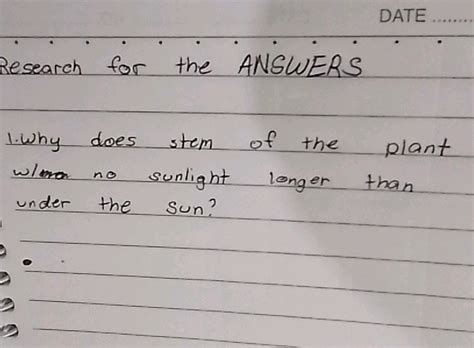 DATE ........
Research for the ANSWERS
1. Why does stem of the plant
w/ no sunlight longer than
under the sun?